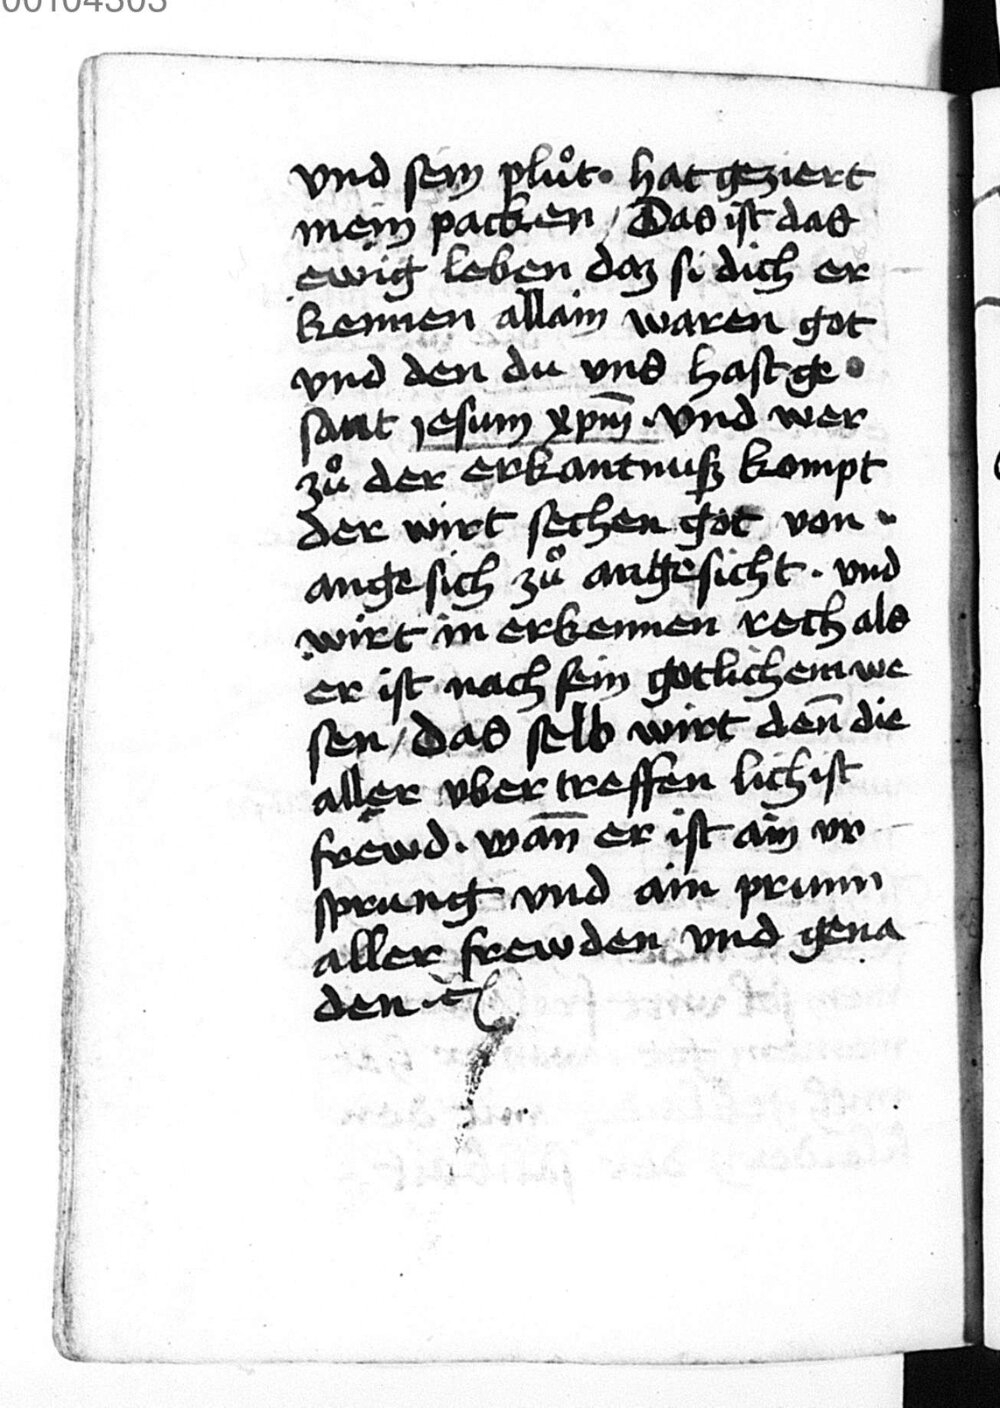 00104303
vnd sein plůt · hat geziert
mein packen / Das ist das
ewig leben daz si dich er
kennen allain waren got
vnd den du vnd hast ge
sant jesum xp̄m · Vnd wer
zů der erkantnuß kompt
der wirt sechen got von
angesich zů angesicht · vnd
wirt in erkennen rech als
er ist nach sein gotlichem we
sen / Das selb wirt den̄ die
aller vber treffen lich ist
frewd · wan̄ er ist ain vr
sprung vnd ain prunn
aller frewden vnd gena
den ·